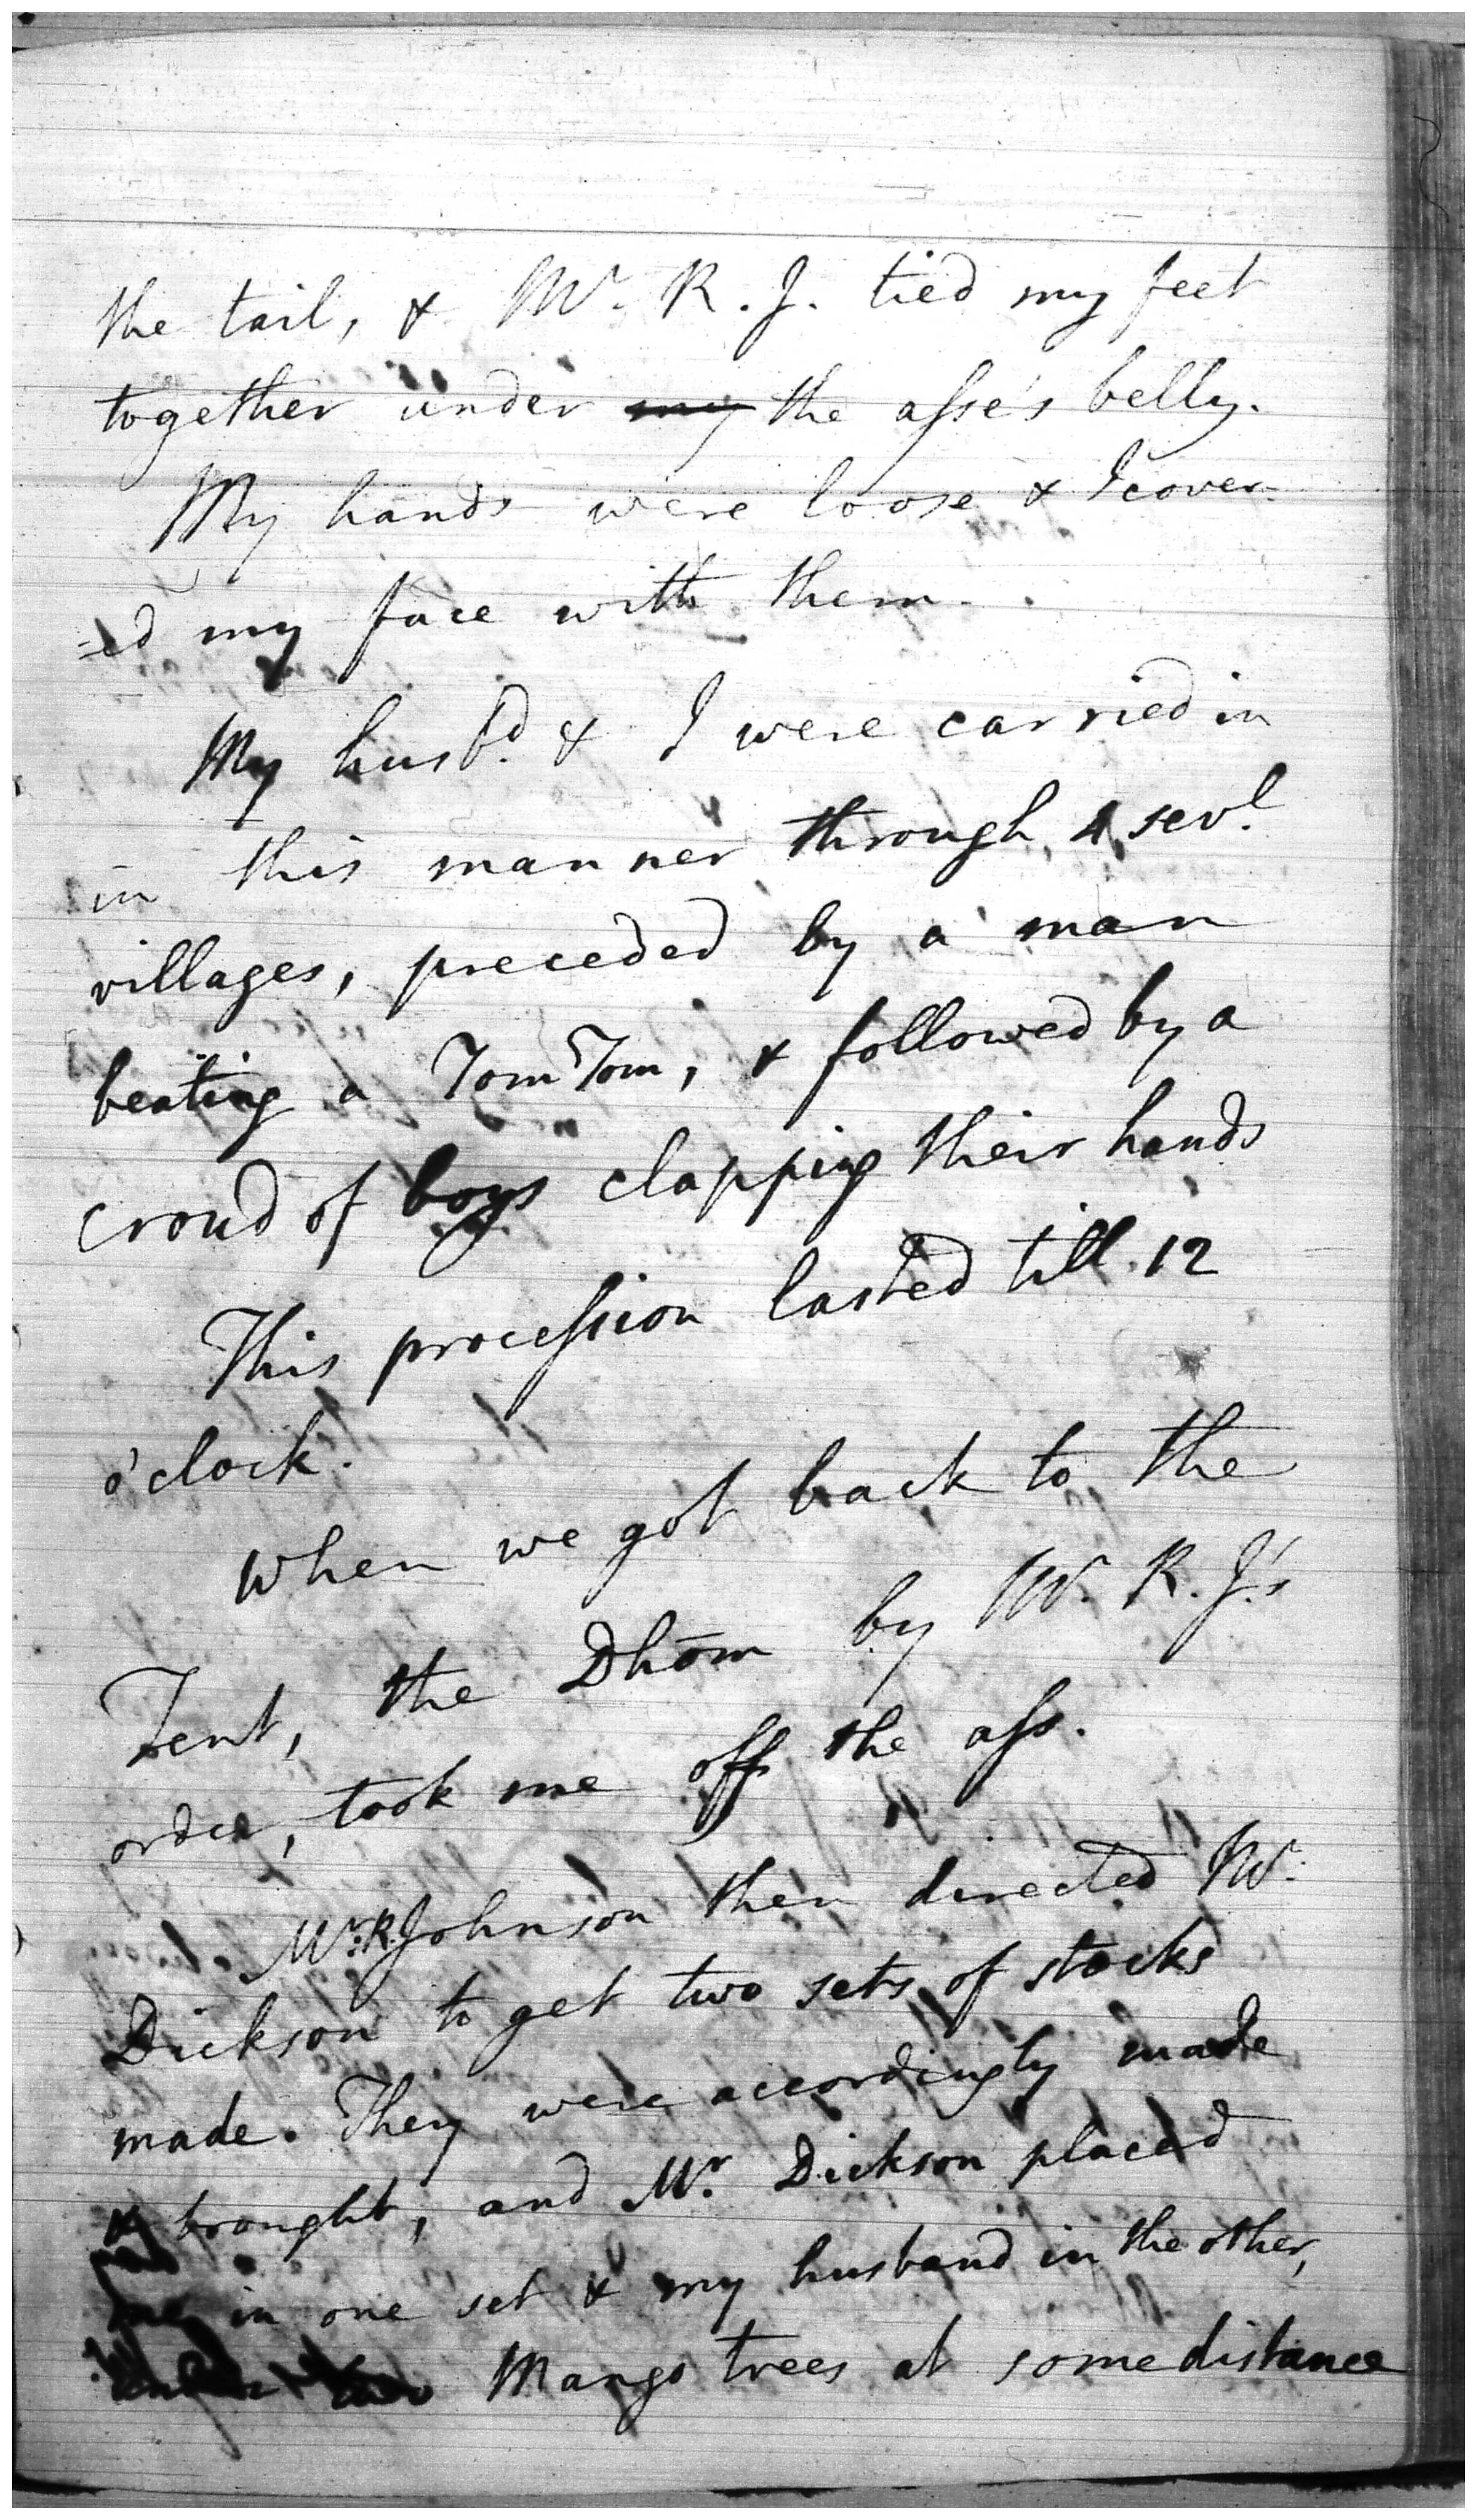 the tail, & Mr. R. J. tied my feet
together under my the asse's belly.
My hands were loose & I cover-
=ed my face with them.
My husbd. & I were carried in
in this manner through 4 sevl.
villages, preceded by a man
beating a Tom Tom, & followed by a
croud of boys clapping their hands
This procession lasted till 12
o'clock.
when we got back to the
Tent, the Dhōm by Mr. R. J.'s
order, took me off the ass.
Mr. R. Johnson then directed Mr.
Dickson to get two sets of stocks
made. They were accordingly made
& brought, and Mr. Dickson placed
me in one set & my husband in the other,
under two Mango trees at some distance